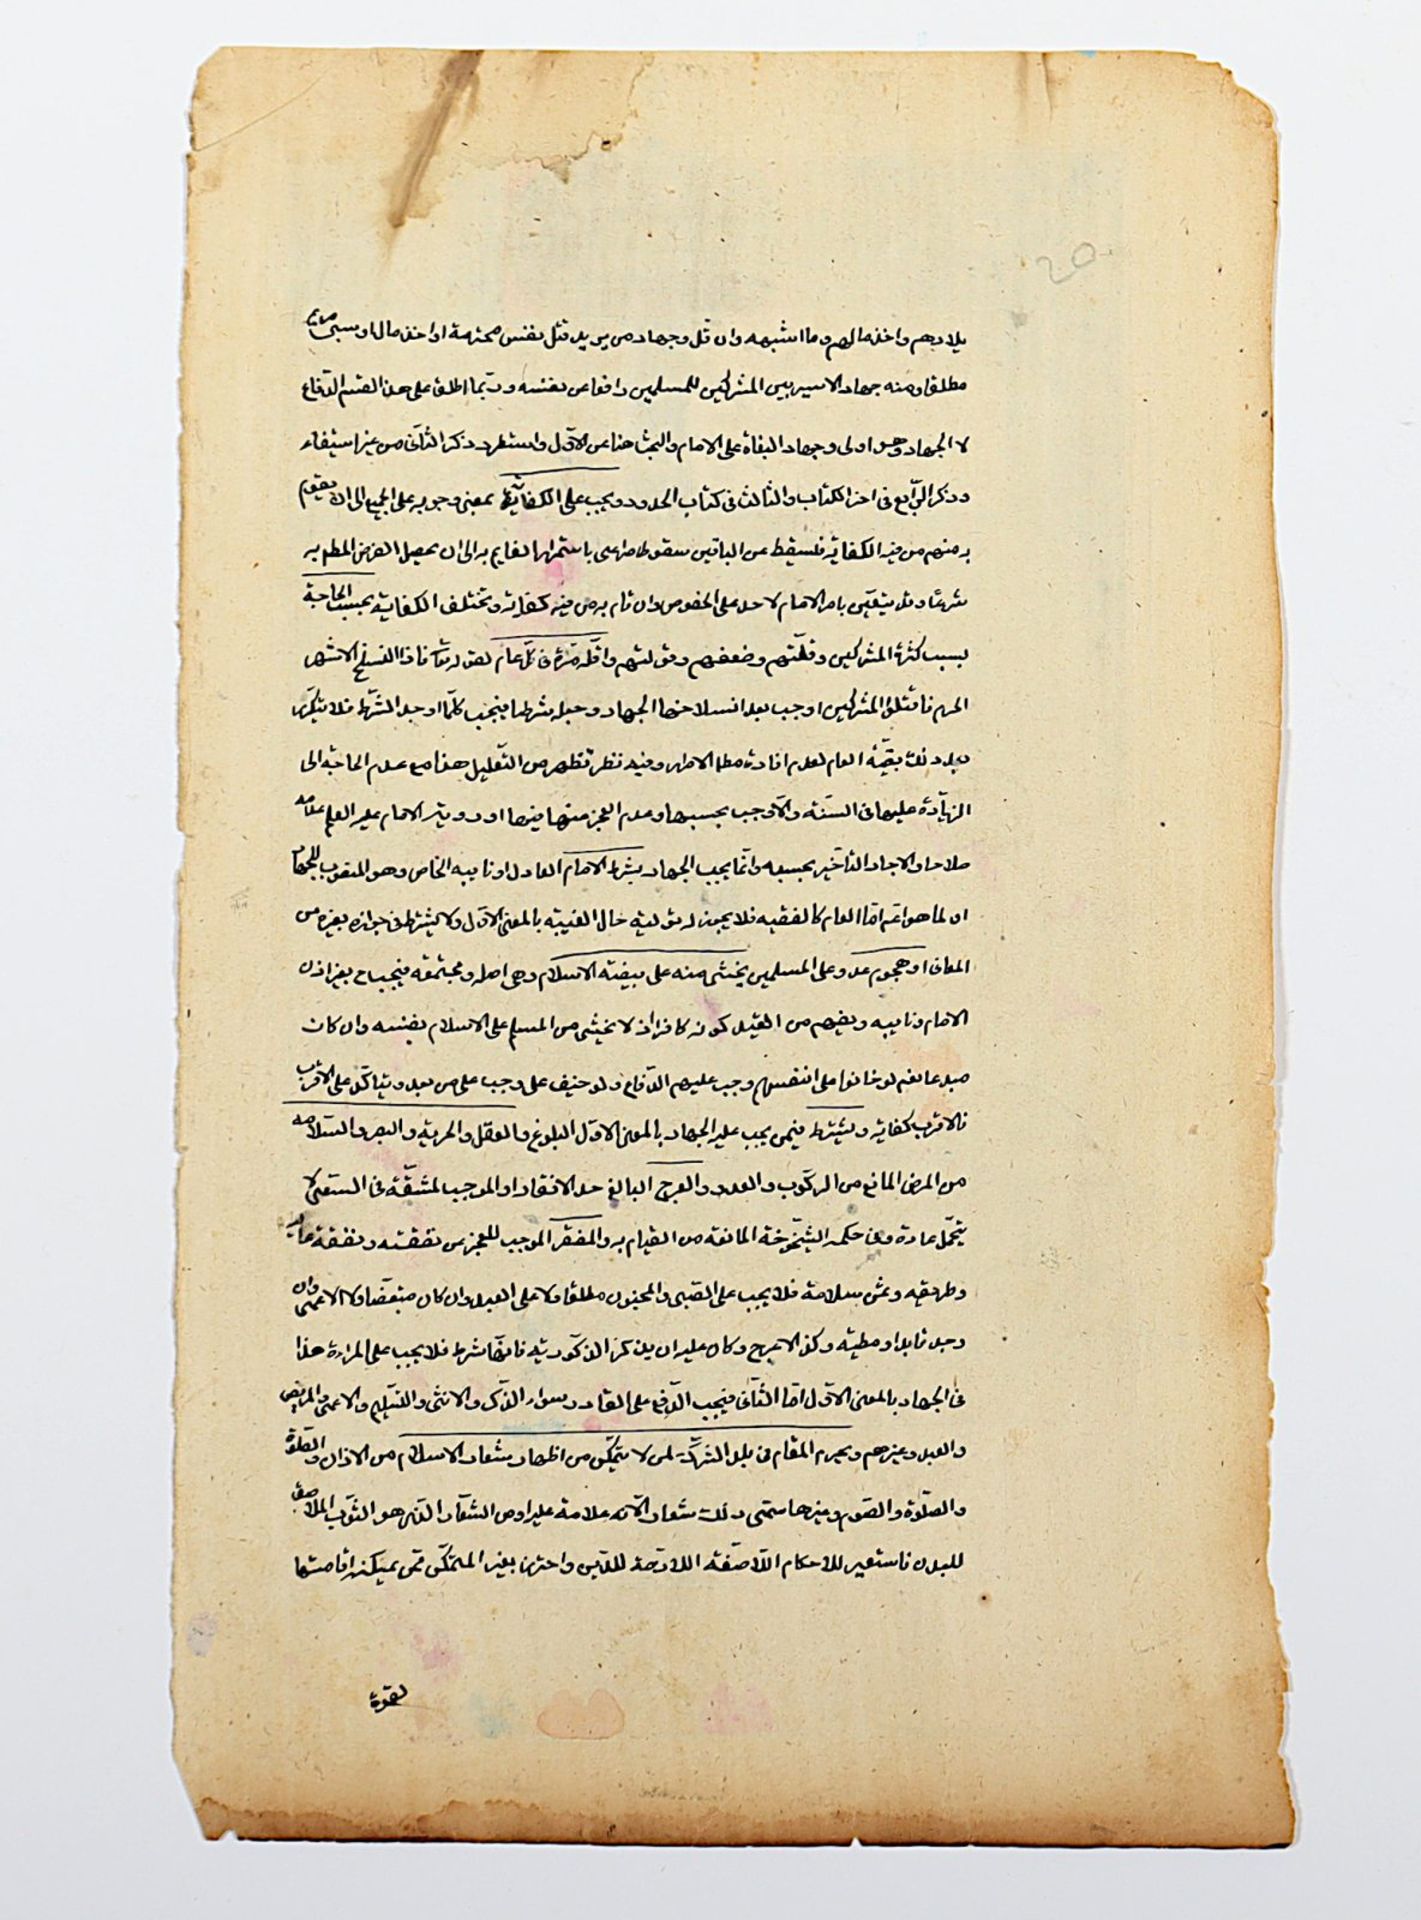 20
بلادهم واخذ مالهم وما اشبهه وان قل وجهاد من يريد قتل نفس محترمة او اخذ مال او سبي حريم
مطلقا ومنه جهاد الاسير بين المشركين للمسلمين دافعا عن نفسه وربّما اطلق على هذا القسم الدّفاع
لا الجهاد وهو اولى وجهاد البغاة على الامام والبحث هنا عن الاوّل واستطرد ذكر الثّانى من غير استيفاء
وذكر الرّابع فى اخر الكتاب والثالث فى كتاب الحدود ويجب على الكفاية بمعنى وجوبه على الجميع الى ان يقوم
به منهم من فيه الكفاية فليسقط عن الباقين سقوطا مراعى باستمرار القايم به الى ان يحصل الغرض المطلوب به
شرعًا وقد يتعيّن بامر الامام لاحد على الخصوص وان قام به من فيه كفاية وتختلف الكفاية بحسب الحاجة
بسبب كثرة المشركين وقلّتهم وضعفهم وقوتهم واقلّه مرّة فى كلّ عام لقوله تعا فاذا انسلخ الاشهر
الحرم فاقتلوا المشركين اوجب بعد انسلاخها الجهاد وجعله شرطا فيجب كلّما وجد الشّرط فلا يتكرّر
بعد ذلك بقيّة العام لعدم افادة مطلق الامر وفيه نظر تظهر من التّعليل هذا مع عدم الحاجة الى
الزّيادة عليها فى السنّة والّا وجب بحسبها وعدم العجز عنها فيها او رؤية الامام عليه السلم عدمه
صلاحا والا جاز التأخير بحسبه وانّما يجب الجهاد بشرط الامام العادل او نايبه الخاص وهو المنصوب للجهاد
او لما هو اعم امّا العام كالفقيه فلا يجوز له توليته حال الغيبة بالمعنى الاوّل ولا يشترط فى جوازه بغيره من
المعانى او هجوم عدو على المسلمين يخشى منه على بيضة الاسلام وهى اصله ومجتمعه فيجب ح بغير اذن
الامام ونايبه ويفهم من القيد كونه كافرا اذ لا يخشى من المسلم على الاسلام نفسه وان كان
مبدعا نعم لو خافوا على انفسهم وجب عليهم الدّفاع ولو خيف على وجب على من بعد ويتأكّد على الاقرب
فالاقرب كفاية ويشترط فيمن يجب عليه الجهاد بالمعنى الاوّل البلوغ والعقل والحرية والبصر والسّلامة
من المرض المانع من الركوب والعدو والعرج البالغ حد الاقعاد او الموجب لمشقّة فى السعى لا
يتحمّل عادة وفى حكمه الشيخوخة المانعة من القيام به والفقر الموجب للعجز عن نفقته ونفقة عياله
وطريقه وثمن سلاحه فلا يجب على الصّبى والمجنون مطلقا ولا على العبد وان كان مبعّضا ولا الاعمى وان
وجد قايدا ومطيّة وكذا الاعرج وكان عليه ان يذكر الذّكورية فانّها شرط فلا يجب على المراءة هذا
فى الجهاد بالمعنى الاوّل امّا الثّانى فيجب الدّفع على القادر سواء الذّكر والانثى والسّليم والاعمى والمريض
والعبد وغيرهم ويحرم المقام فى بلد الشرك لمن لا يتمكّن من اظهار شعار الاسلام من الاذان والصّلوة
والصّلوة والصّوم وغيرها سمّى ذلك شعارا لانّه علامة عليه او من الشعار الّذى هو الثّوب الملاصق
للبدن فاستعير للاحكام اللّاصقة اللازمة للدّين واحترز بغير المتمكّن ممّن يمكنه اقامتها
لقوة